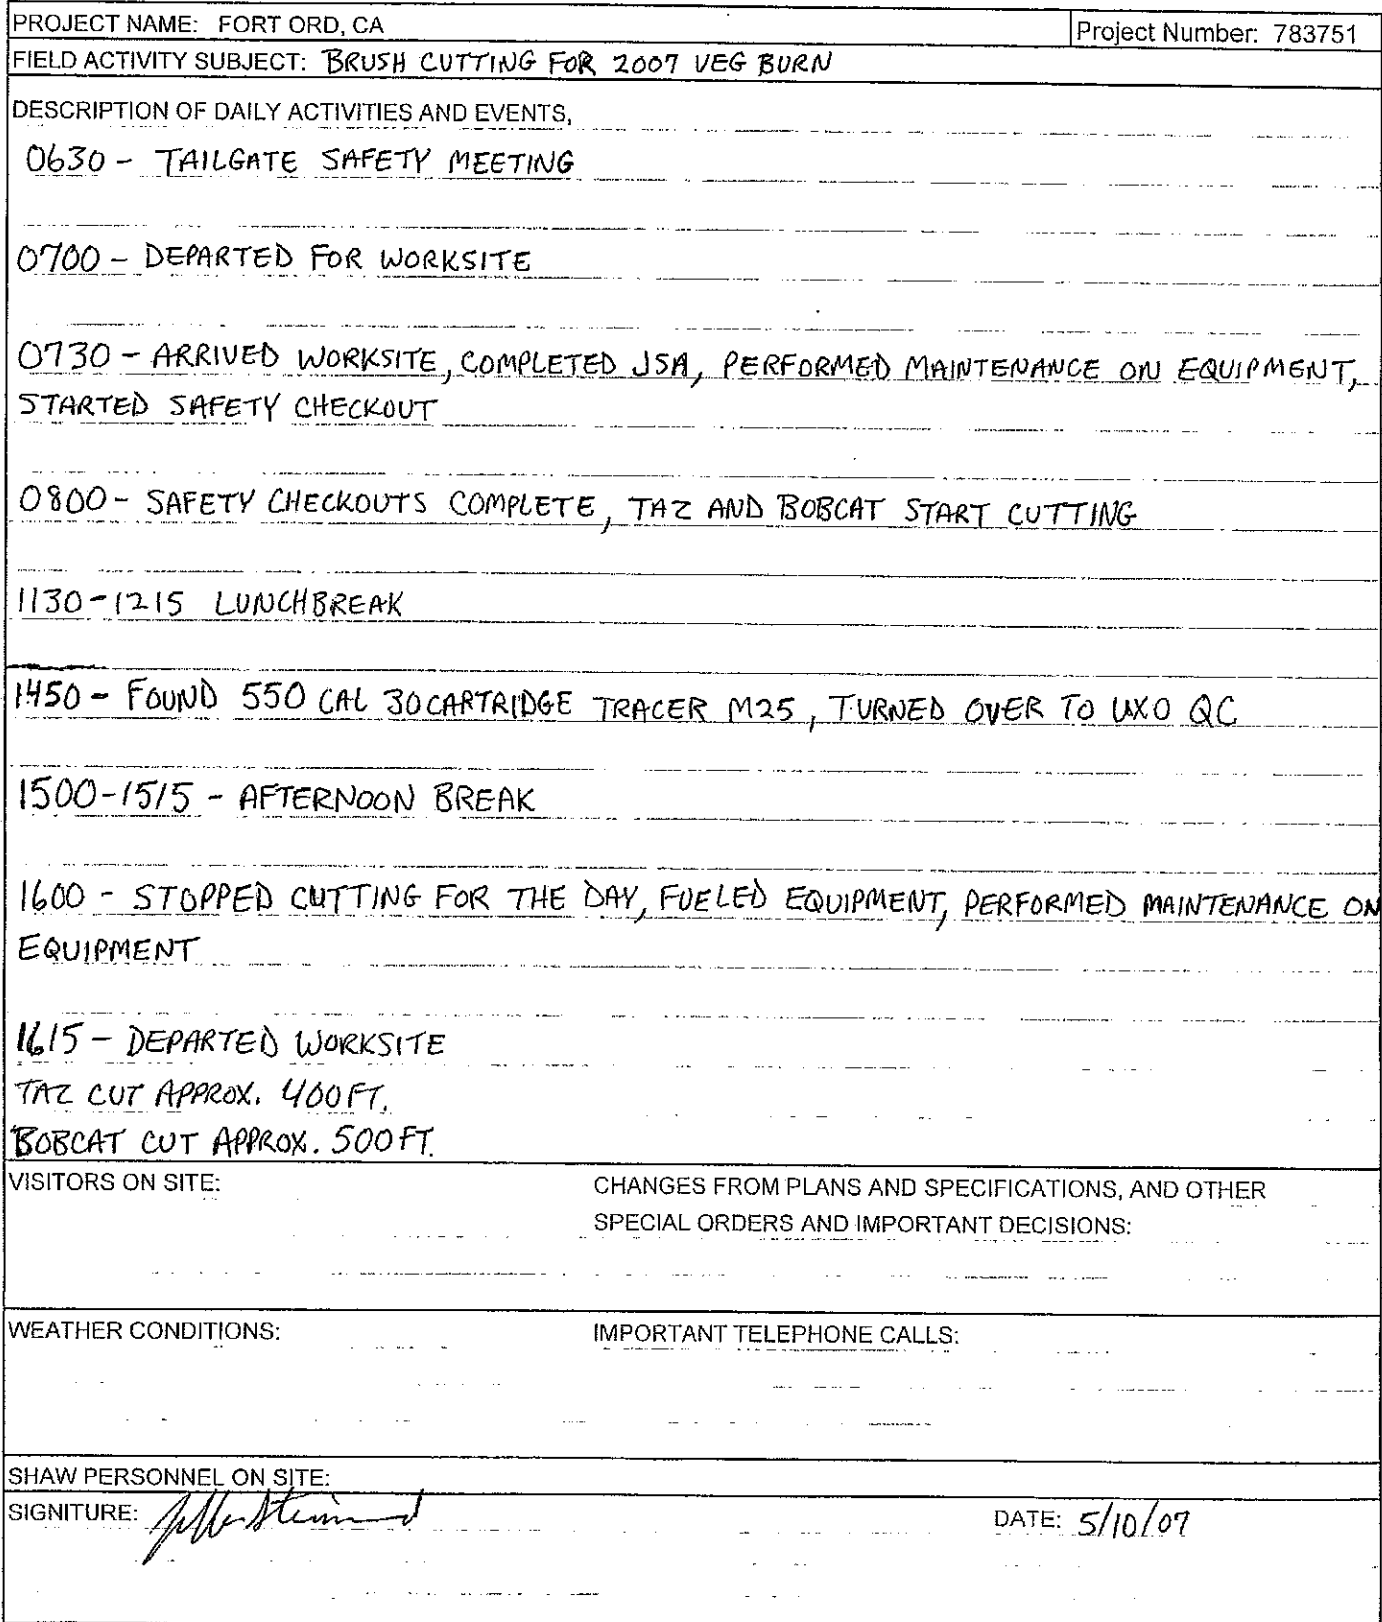 PROJECT NAME: FORT ORD, CA Project Number: 783751
FIELD ACTIVITY SUBJECT: BRUSH CUTTING FOR 2007 VEG BURN
DESCRIPTION OF DAILY ACTIVITIES AND EVENTS,
0630 - TAILGATE SAFETY MEETING
0700 - DEPARTED FOR WORKSITE
0730 - ARRIVED WORKSITE, COMPLETED JSA, PERFORMED MAINTENANCE ON EQUIPMENT,
STARTED SAFETY CHECKOUT
0800 - SAFETY CHECKOUTS COMPLETE, TAZ AND BOBCAT START CUTTING
1130-1215 LUNCHBREAK
1450 - FOUND 550 CAL 30 CARTRIDGE TRACER M25, TURNED OVER TO UXO QC
1500-1515 - AFTERNOON BREAK
1600 - STOPPED CUTTING FOR THE DAY, FUELED EQUIPMENT, PERFORMED MAINTENANCE ON
EQUIPMENT
1615 - DEPARTED WORKSITE
TAZ CUT APPROX. 400 FT.
BOBCAT CUT APPROX. 500 FT.
VISITORS ON SITE: CHANGES FROM PLANS AND SPECIFICATIONS, AND OTHER
SPECIAL ORDERS AND IMPORTANT DECISIONS:
WEATHER CONDITIONS: IMPORTANT TELEPHONE CALLS:
SHAW PERSONNEL ON SITE:
SIGNITURE: DATE: 5/10/07